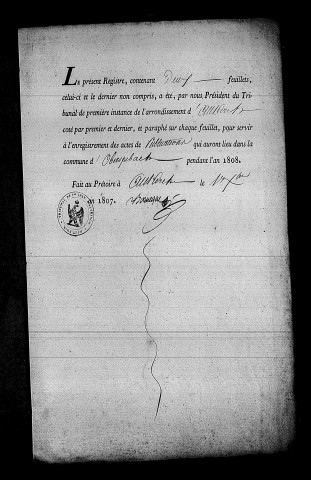 Le présent Registre, contenant Deux feuillets,
celui-ci et le dernier non compris, a été, par nous Président du Tri-
bunal de première instance de l'arrondissement d'Altkirch
coté par premier et dernier, et paraphé sur chaque feuillet, pour servir
à l'enregistrement des actes de Publications qui auront lieu dans la
commune d' pendant l'an 1808.
Fait au Prétoire à Altkirch le
en 1807.